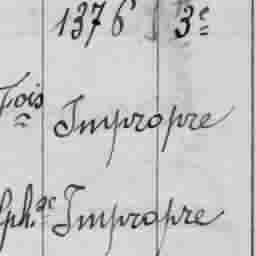 1376 3e
Fois Impropre
lph.ne Impropre